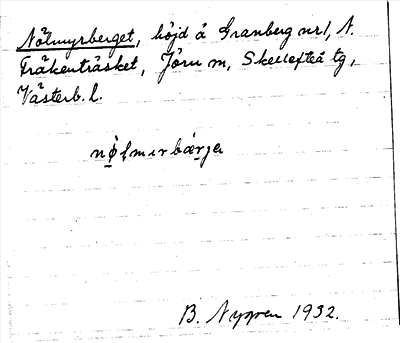 Nötmyrberget, höjd å Granberg nr 1, N.
Fräkenträsket, Jörn m, Skellefteå tg,
Västerb. l.
B. Nygren 1932.